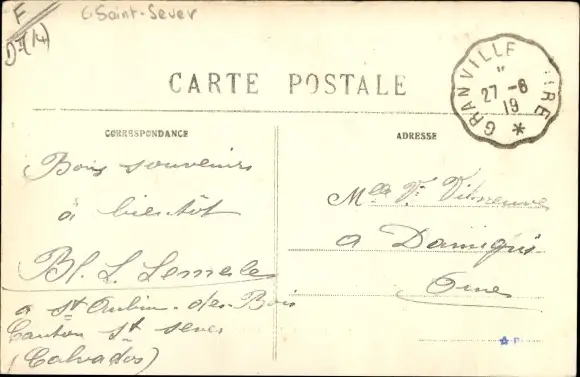 F
D7(14)
C Saint-Sever
CARTE POSTALE
GRANVILLE VIRE
27-8
19
CORRESPONDANCE
ADRESSE
Bons souvenirs
à bientôt
Bl. L. Lemele
a St Aubin-des-Bois
Canton St Sever
(Calvados)
Mlle V.
a Damigni
Orne